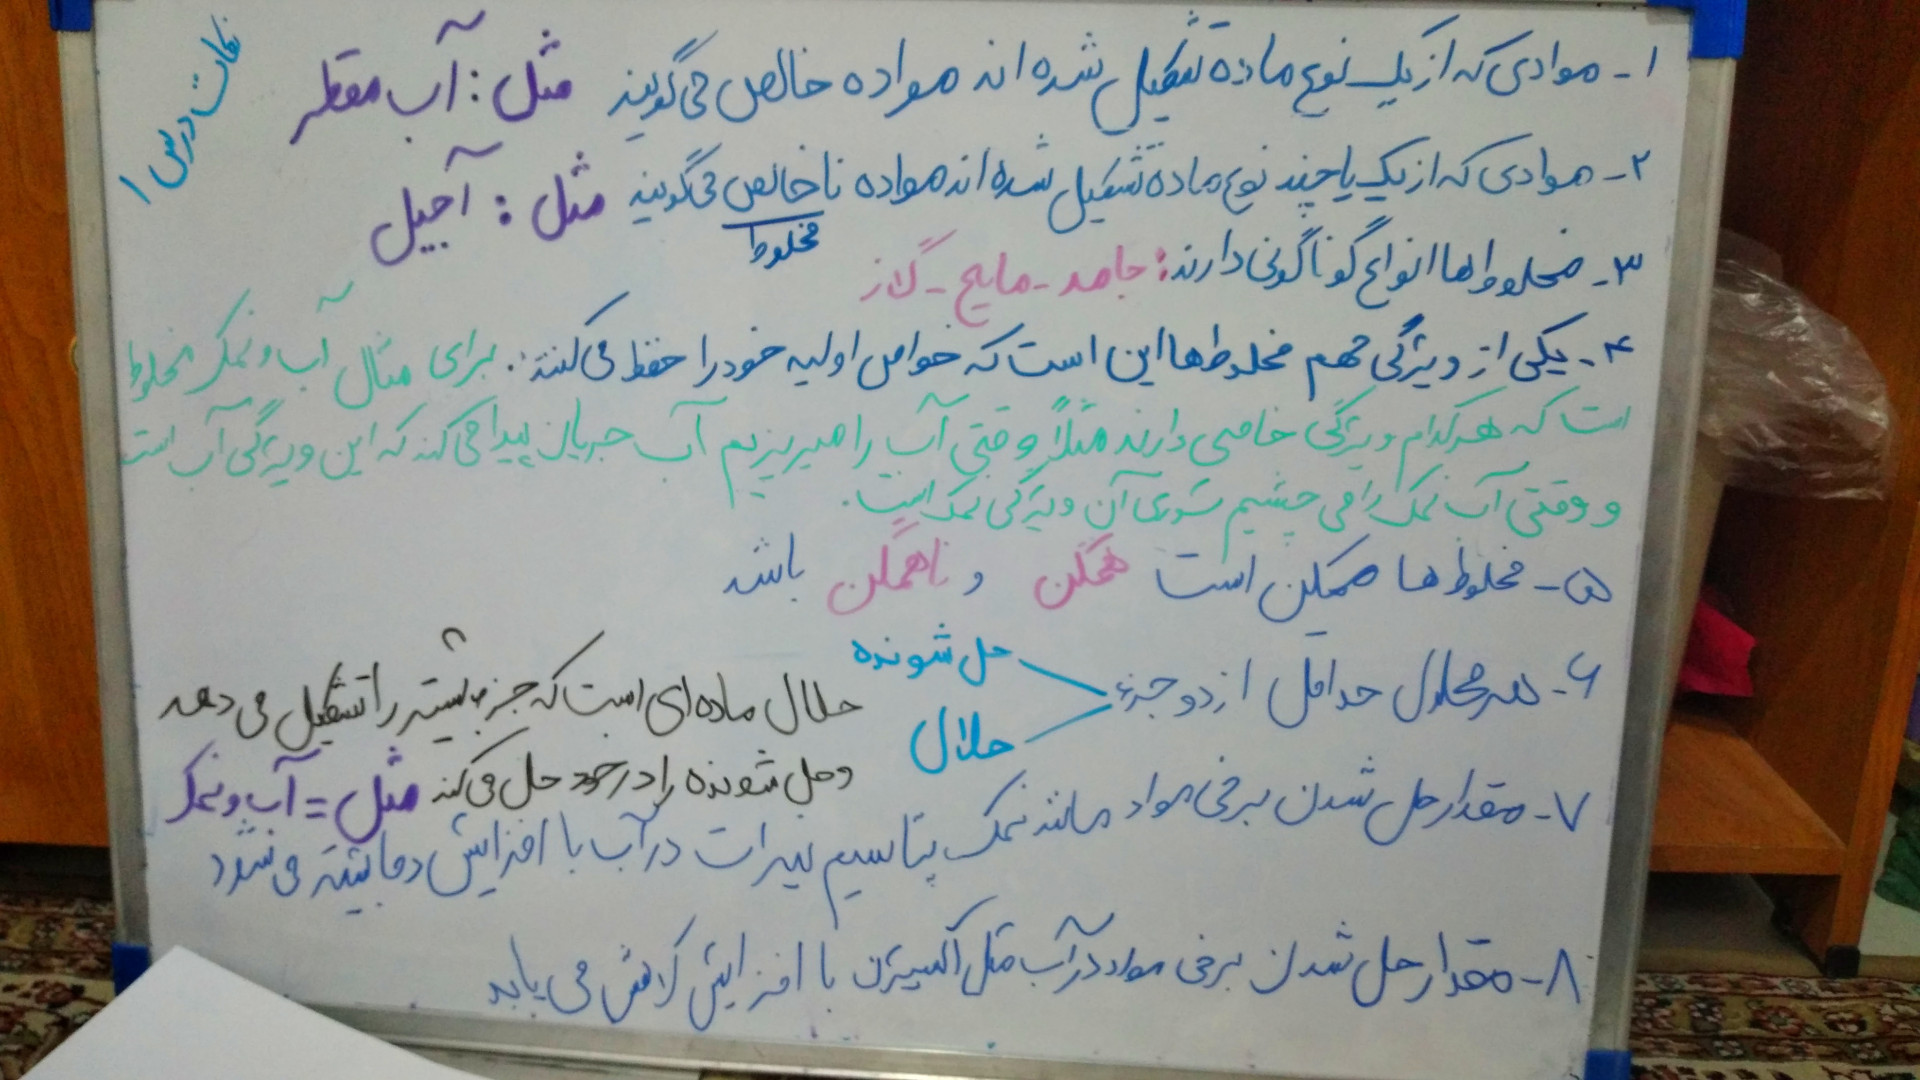 نکات درس ۱
۱- موادی که از یک نوع ماده تشکیل شده اند مواده خالص می گویند مثل : آب مقطر
۲- موادی که از یک یا چند نوع ماده تشکیل شده اند مواده ناخالص می گویند مثل : آجیل
مخلوط
۳- مخلوط ها انواع گوناگونی دارند : جامد - مایع - گاز
۴- یکی از ویژگی مهم مخلوط ها این است که خواص اولیه خود را حفظ می کنند . برای مثال آب و نمک مخلوط
است که هر کدام ویژگی خاصی دارند مثلاً وقتی آب را میریزیم آب جریان پیدا می کند که این ویژگی آب است
و وقتی آب نمک را می چشیم شوری آن ویژگی نمک است .
۵- مخلوط ها ممکن است همگن و ناهمگن باشد
۶- هر محلول حداقل از دو جزء
حل شونده
حلال
حلال ماده ای است که جزء بیشتر را تشکیل می دهد
و حل شونده را در خود حل می کند مثل = آب و نمک
۷- مقدار حل شدن برخی مواد مانند نمک پتاسیم نیترات در آب با افزایش دما بیشتر می شود
۸- مقدار حل شدن برخی مواد در آب مثل اکسیژن با افزایش کاهش می یابد